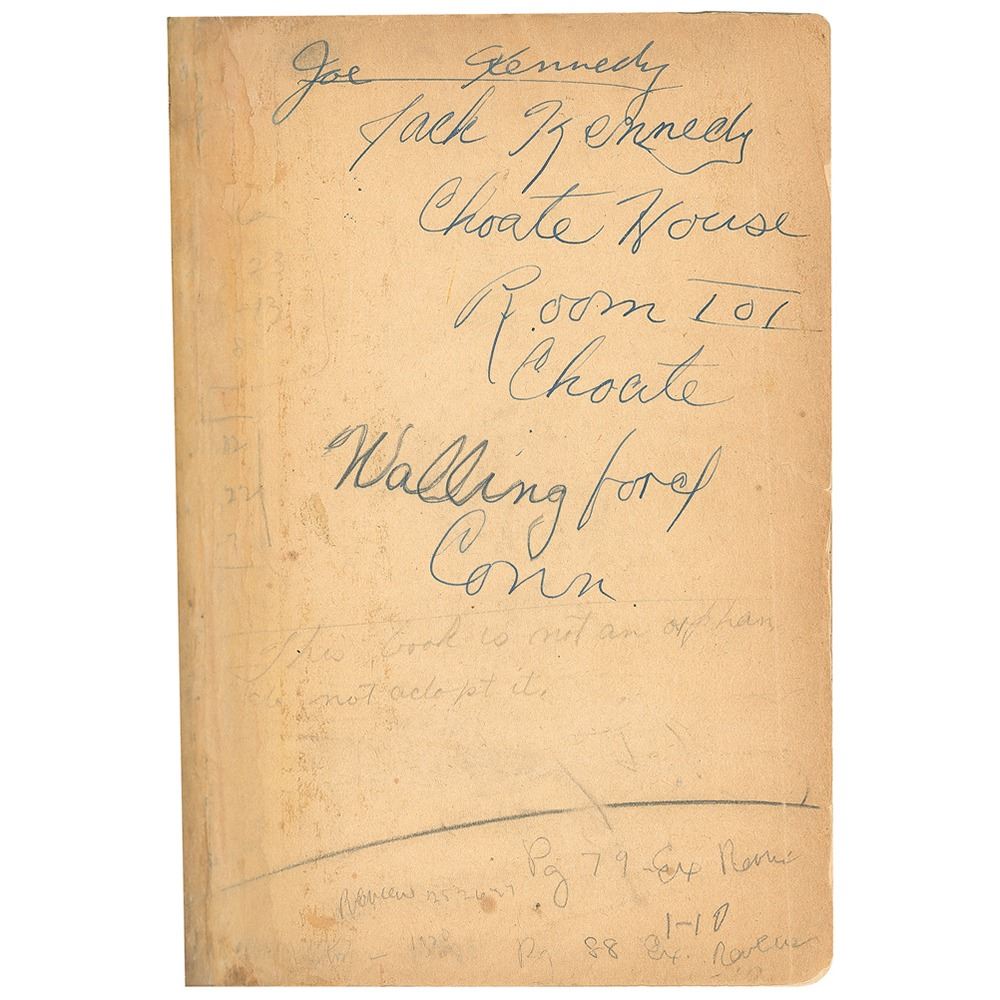 Joe Kennedy
Jack Kennedy
Choate House
Room 101
Choate
Wallingford
Conn
This book is not an orphan
do not adopt it.
Pg 79 Ex Review
Review 25 26 27
1-10
Pg 88 Ex. Review